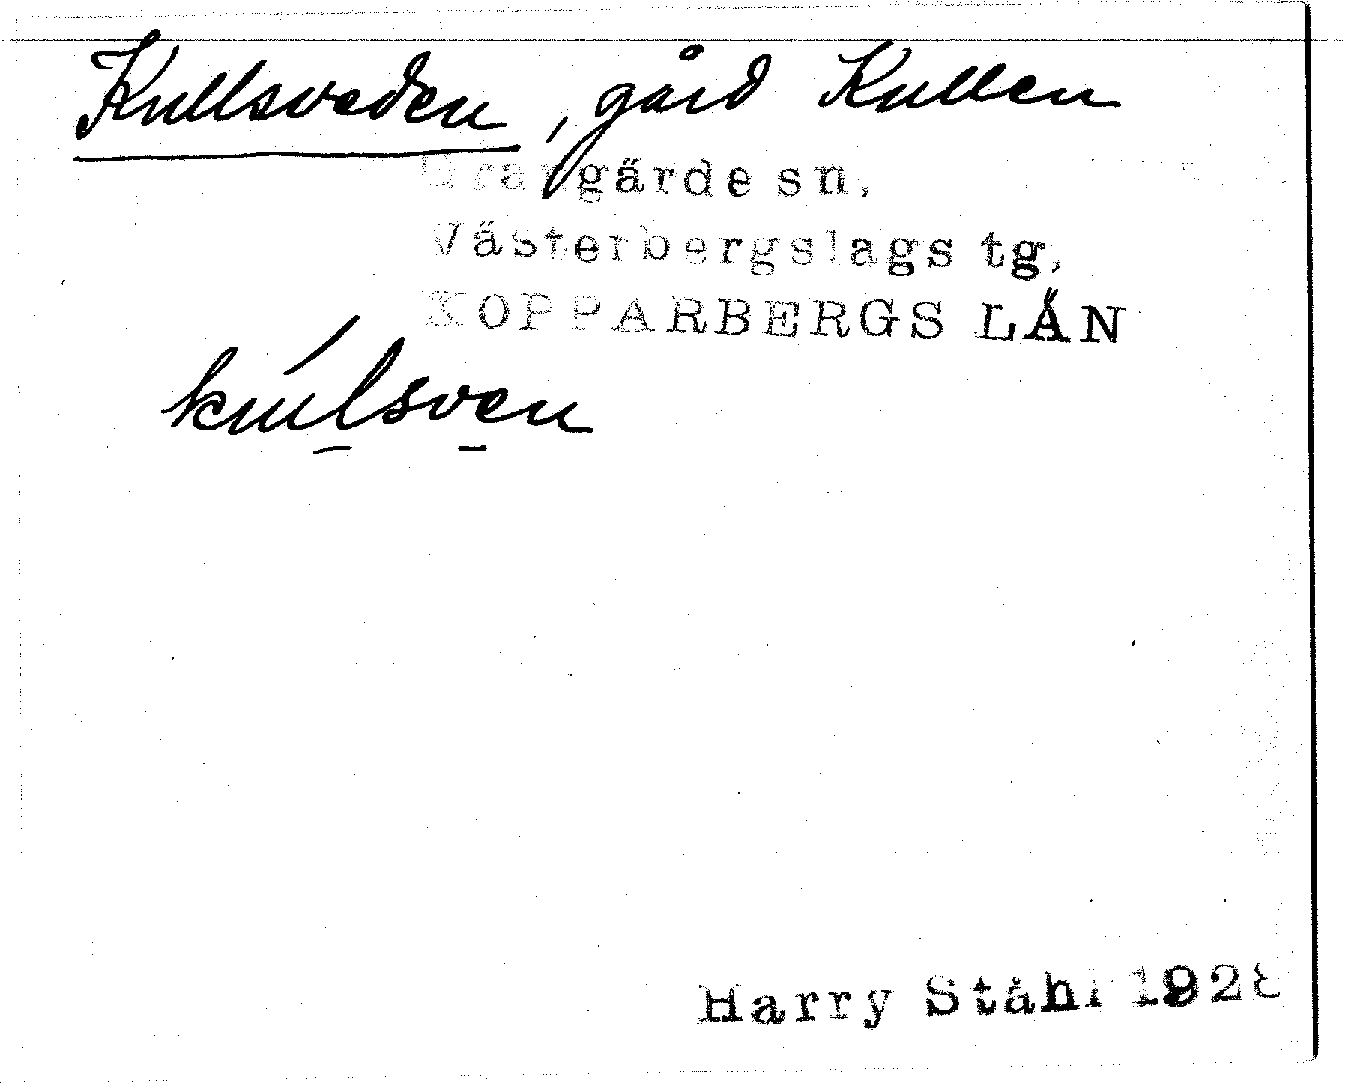 Kullsveden, gård Kullen
Grangärde sn,
Västerbergslags tg,
KOPPARBERGS LÄN
Harry Ståhl 1928